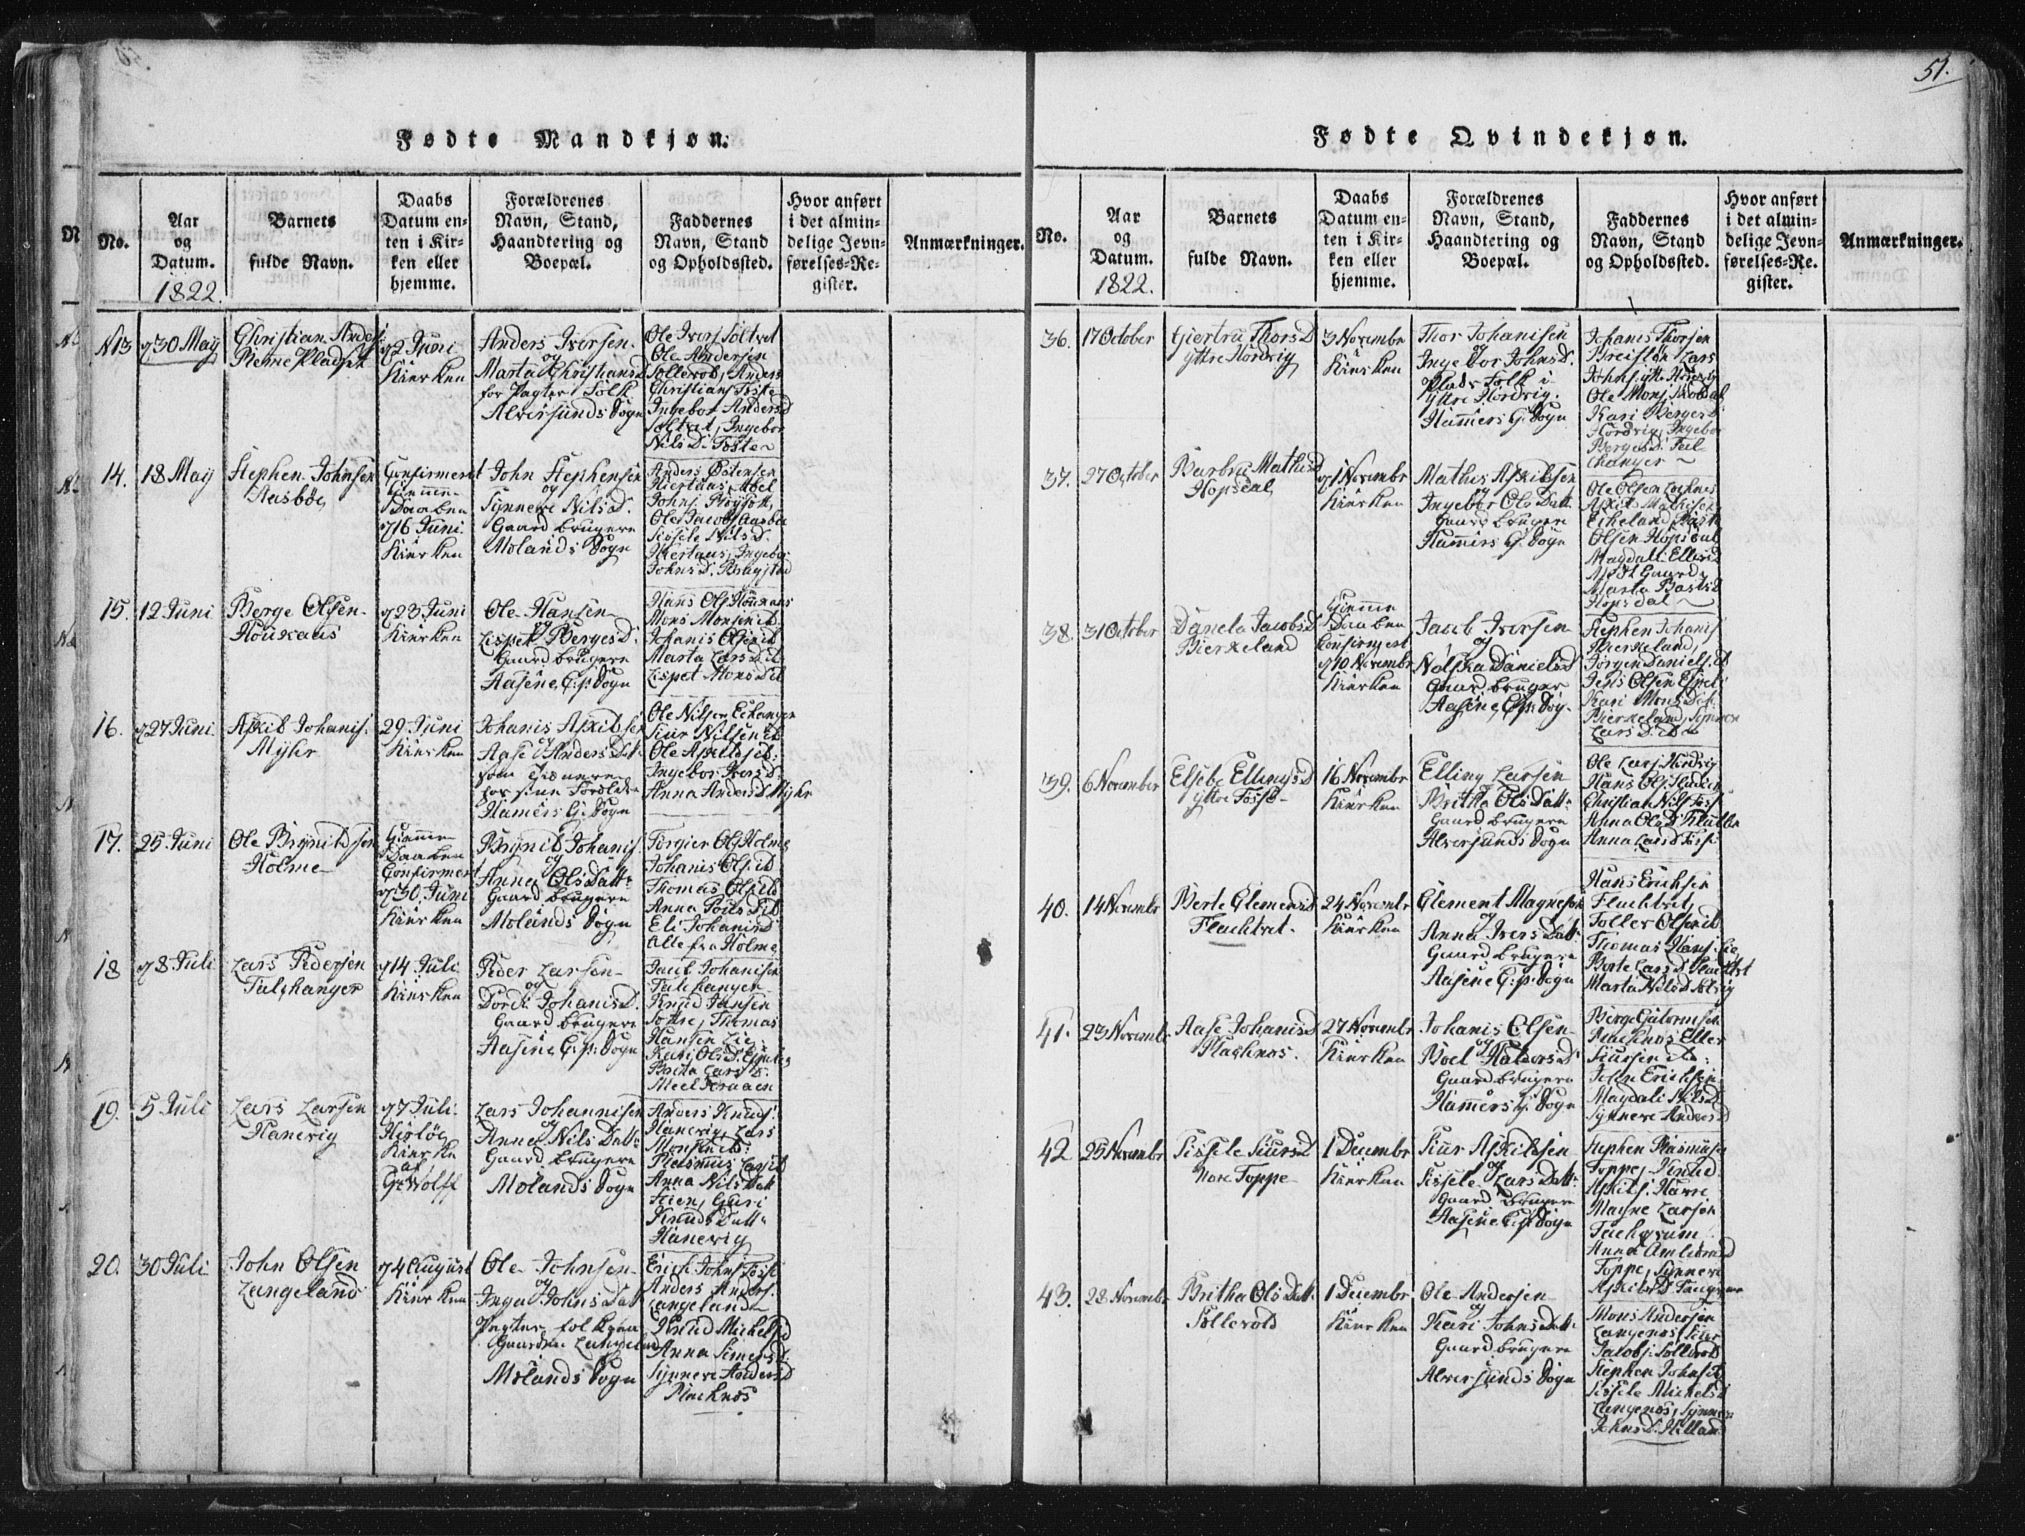 51.
Fødte Mandkjøn.
No.
Aar
og
Datum.
1822.
Barnets
fulde Navn.
Daabs
Datum en-
ten i Kir-
ken eller
hjemme.
Forældrenes
Navn, Stand,
Haandtering og
Boepæl.
Faddernes
Navn, Stand
og Opholdssted.
Hvor anført
i det almin-
delige Jevn-
førelses-Re-
gister.
Anmærkninger.
N13
30 May
Christian Anders
Pladset
2 Juni
Kirken
Anders Iversen
og
Marta Christiansd
Folk
Alversunds Sogn
Ole Ivers Soltvet
Ole Andersen
Sollerod, Anders
Christians Foste
Ingebor Andersd
Soltvet, Ingebor
Nils D. Foste
14.
18 May
Stephen Johnsen
Aasbøe
Confirmeret
Hiemme
Daaben
16 Juni
Kirken
John Stephensen
og
Synneve Nilsd.
Gaard brugere
Molands Sogn
Anders Østensen
Ole Jacobs Aasbøe
Sissele Nilsd.
Ingebor
Johnsd.
15.
12 Juni
Berge Olsen
23 Juni
Kirken
Ole Hansen
og
Lispet Bergesd.
Gaard brugere
Aasene C: p: Sogn
Mons Monsen ib
Johanis Ols ib
Marta Larsd ib
Lispet Monsd ib
16.
27 Juni
Askild Johanis.
Myhr
29 Juni
Kirken
Johanis Askildsen
og
Aase Anders Dat.
som tienere
for sine Forældre
Hamers G: Sogn
Ole Nilsen Echanger
Siur Nilsen ib
Ingebor Ivers d.
Anna Andersd Myhr
17.
25 Juni
Ole Brynildsen
Holme
Hiemme
Daaben
Confirmert
30 Juni
Kirken
Brynild Johanis
og
Anna Ols Datt:
Gaard brugere
Molands Sogn
Torgier Ols Holme
Johanis Ols ib
Thomas Ols ib
Anna Pouls D ib
Eli Johanisd
Alle fra Holme
18
8 Juli
Lars Pedersen
14 Juli
Kirken
Peder Larsen
og
Dordi Johanisd.
Gaard brugere
Aasene C: p: Sogn
Jacob Johanisen
Knud Jansen
Thomas
Hansen Lie
Kari Olsd.
Brita Lars D.
19.
5 Juli
Lars Larsen
Hanevig
7 Juli
Herløe
Kirke
af
Gr Wolff
Lars Johannisen
og
Anna Nils Datt:
Gaard brugere
Molands Sogn
Anders Knuds.
Hanevig, Lars
Monsen ib:
Rasmus Lars ib
Anna Nils Datt
Guri
Knuds Datt
Hanevig
20.
30 Juli
John Olsen
Langeland
4 August
Kirken
Ole Johnsen
og
Inga Johns Datt
Gaarden Langeland
Molands Sogn
Erich Johns Fosse
Anders Anders.
Langeland
Knud Michels
Anna Simensd
Synneve Andersd
Fødte Qvindekjøn.
No.
Aar
og
Datum.
1822.
Barnets
fulde Navn.
Daabs
Datum en-
ten i Kir-
ken eller
hjemme.
Forældrenes
Navn, Stand,
Haandtering og
Boepæl.
Faddernes
Navn, Stand
og Opholdssted.
Hvor anført
i det almin-
delige Jevn-
førelses-Re-
gister.
Anmærkninger.
36.
17 October
Giertru Thorsd
yttre Hordvig
3 Novembr
i
Kirken
Thor Johanisen
og
Ingebor Johnsd.
Plads Folk i
yttre Hordvig.
Hamers G: Sogn
Johanis Thorsen
Lars
Johns. yttre Hordvig
Ole Mons.
Kari Bergesd
Hordvig, Ingebor
Bergesd.
37.
27 October
Barbra Mathisd
Hopsdal
1 Novembr
Kirken
Mathis Askildsen
og
Ingebor Ols Datt
Gaard brugere
Hamers G. Sogn
Ole Olsen
Askild Mathisen
Olsen Hopsdal
Magdali Ellisd
Marta Baardsd
Hopsdal
38.
31 October
Danela Jacobsd
Bierkeland
Hiemme
Daaben
Confirmert
10 Novembr
Kirken
Jacob Iversen
og
Danielsd
Gaard bruger
Aasene C: p: Sog.
Stephen Johanis
Bierkeland
Jørgen Daniels ib
Jens Olsen
Kari Mons Dat.
Bierkeland, Synneve
Lars D. ib
39.
6 November
Elsebe Ellingsd
yttre Fosse
16 Novembr
Kirken
Elling Larsen
og
Britha Ols Datt:
Gaard brugere
Alversunds Sogn
Ole Lars. Hordvig
Christian Nils Fosse
Anna Larsd Fosse
40.
14 Novembr
Berte Clemensd
Flachtvet
24 Novembr
Kirken
Clement Magnesen
og
Anna Ivers Datt.
Gaard brugere
Aasene C: p: Sogn
Hans Erichsen
Flachtvet,
Toller Olsen ib
Thomas Hans. Lie,
Berte Larsd Flachtvet
Marta Nilsd
41.
23 Novembr
Aase Johanisd
27 Novembr
Kirken
Johanis Olsen
og
Boel Haldorsd
Gaard brugere
Hamers G: Sogn
Siursen ib:
John Erichsen
Magdali Nilsd
Synneve Andersd
42
25 Novembr
Sissele Siursd
Nore Toppe
1 Decembr
Kirken
Siur Askildsen
og
Sissele Lars Datt:
Gaard brugere
Aasene C: p: Sogn
Stephen Rasmusen
Toppe, Knud
Magne Larsen
Anna
Toppe, Synneve
Askilds D.
43.
28 Novembr
Britha Ols Datt.
Sollerod
1 Decembr
Kirken
Ole Andersen
og
Kari Johns Datt:
Gaard brugere
Alversunds Sogn
Mons Andersen
Langenos, Siur
Jacobs. Sollerod
Stephen Johns ib
Sissele Michelsd
Langenos, Synneve
Johns D. Helland